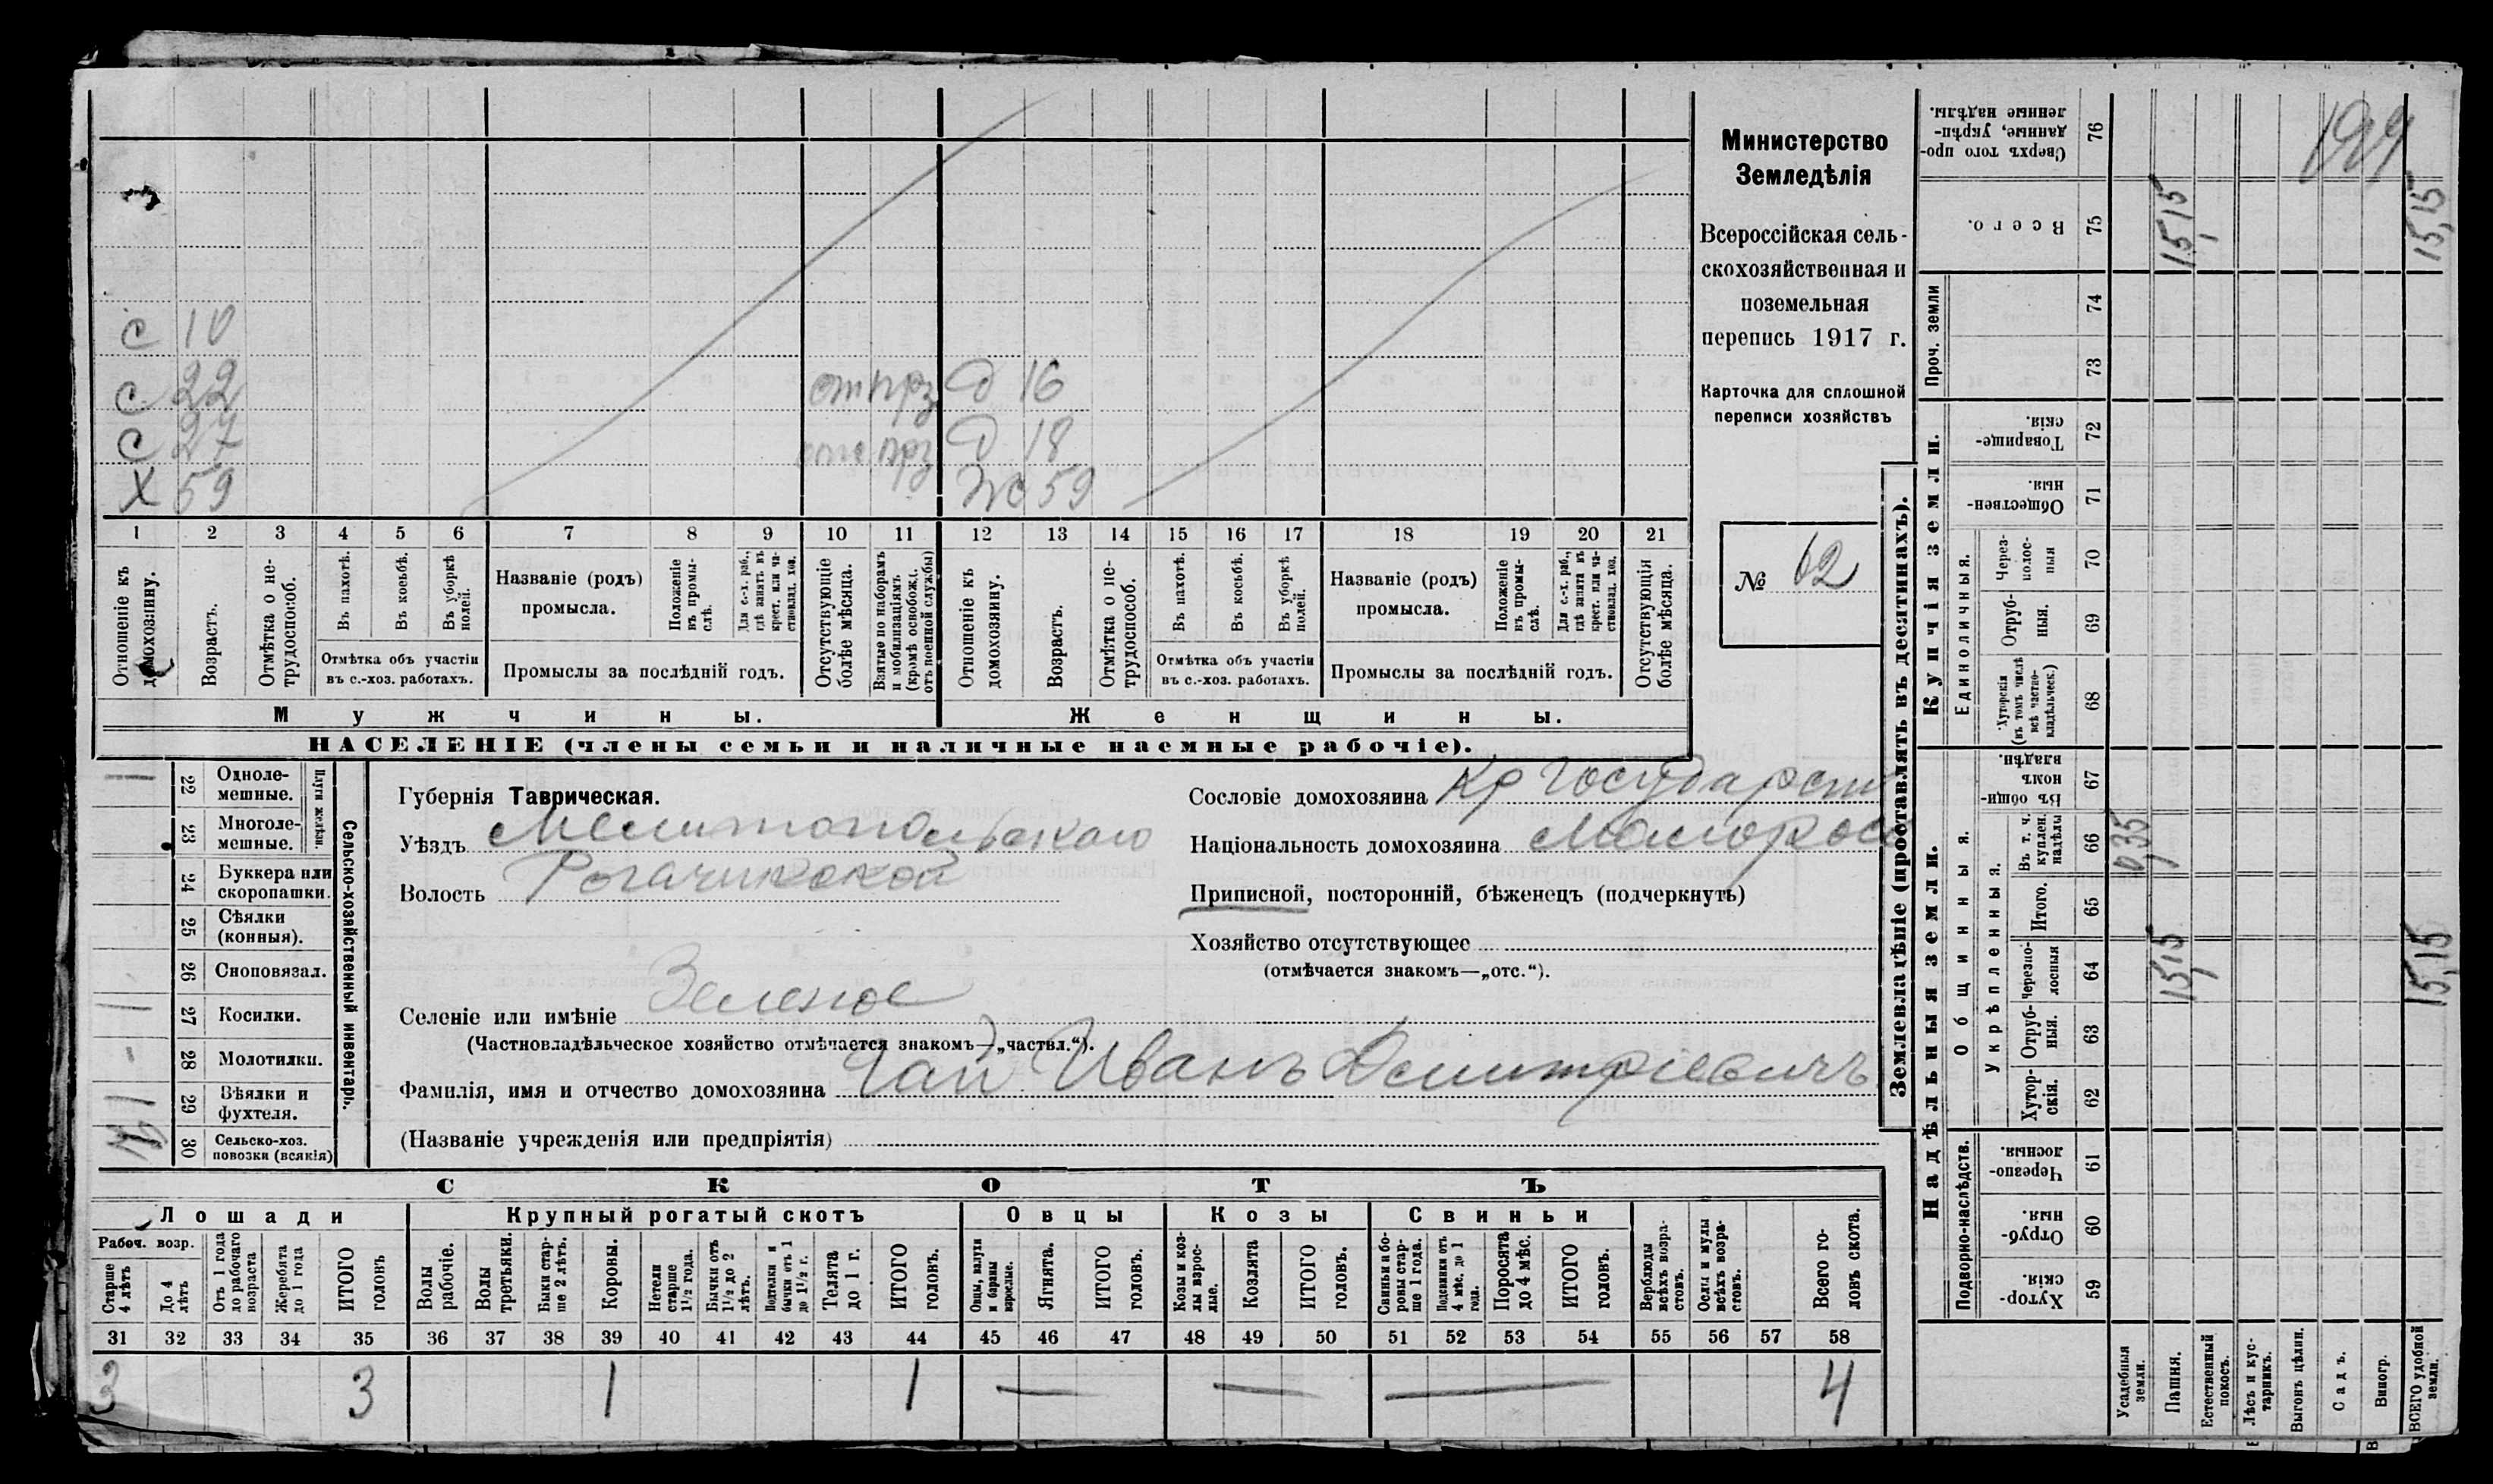 с 10
с 22 отпр д 16
с 27 отпр д 18
Х 59 Ж 59
1 2 3 4 5 6 7 8 9 10 11 12 13 14 15 16 17 18 19 20 21
Отношеніе къ домохозяину.
Возрастъ.
Отмѣтка о не-трудоспособ.
Въ пахотѣ.
Въ косьбѣ.
Въ уборкѣ полей.
Отмѣтка объ участіи въ с.-хоз. работахъ.
Названіе (родъ) промысла.
Положеніе въ промы-слѣ.
Для с.-х. раб., гдѣ занятъ въ крест. или ча-стновлад. хоз.
Промыслы за послѣдній годъ.
Отсутствующіе болѣе мѣсяца.
Взятые по наборамъ и мобилизаціямъ (кромѣ освобожд. отъ военной службы)
Отношеніе къ домохозяину.
Возрастъ.
Отмѣтка о не-трудоспособ.
Въ пахотѣ.
Въ косьбѣ.
Въ уборкѣ полей.
Отмѣтка объ участіи въ с.-хоз. работахъ.
Названіе (родъ) промысла.
Положеніе въ промы-слѣ.
Для с.-х. раб., гдѣ занята въ крест. или ча-стновлад. хоз.
Промыслы за послѣдній годъ.
Отсутствующія болѣе мѣсяца.
Мужчины. Женщины.
НАСЕЛЕНІЕ (члены семьи и наличные наемные рабочіе).
Министерство
Земледѣлія
Всероссійская сель-
скохозяйственная и
поземельная
перепись 1917 г.
Карточка для сплошной
переписи хозяйствъ
№ 62
Сельско-хозяйственный инвентарь.
Плуги желѣзн.
1 22 Одноле-мешные.
23 Многоле-мешные.
24 Буккера или скоропашки.
25 Сѣялки (конныя).
26 Сноповязал.
1 27 Косилки.
- 28 Молотилки.
1 29 Вѣялки и фухтеля.
30 Сельско-хоз. повозки (всякія)
Губернія Таврическая.
Уѣздъ Мелитопольскаго
Волость Рогачикской
Селеніе или имѣніе Зеленое
(Частновладѣльческое хозяйство отмѣчается знакомъ—„частвл.“).
Фамилія, имя и отчество домохозяина Чай Иванъ Дмитріевичъ
(Названіе учрежденія или предпріятія)
Сословіе домохозяина Кр Государст
Національность домохозяина Малорос
Приписной, посторонній, бѣженецъ (подчеркнуть)
Хозяйство отсутствующее
(отмѣчается знакомъ—„отс.“).
СКОТЪ
Лошади Крупный рогатый скотъ Овцы Козы Свиньи
Рабоч. возр.
Старше 4 лѣтъ
До 4 лѣтъ
Отъ 1 года до рабочаго возраста
Жеребята до 1 года
ИТОГО головъ
Волы рабочіе.
Волы третьяки.
Быки стар-ше 2 лѣтъ.
Коровы.
Нетели старше 1½ года.
Бычки отъ 1½ до 2 лѣтъ.
Подтелки и бычки отъ 1 до 1½ г.
Телята до 1 г.
ИТОГО головъ.
Овцы, валухи и бараны взрослые.
Ягнята.
ИТОГО головъ.
Козы и коз-лы взрос-лые.
Козлята
ИТОГО головъ.
Свиньи и бо-ровы стар-ше 1 года.
Подсвинки отъ 4 мѣс. до 1 года.
Поросята до 4 мѣс.
ИТОГО головъ.
Верблюды всѣхъ возра-стовъ.
Ослы и мулы всѣхъ возра-стовъ.
Всего го-ловъ скота.
31 32 33 34 35 36 37 38 39 40 41 42 43 44 45 46 47 48 49 50 51 52 53 54 55 56 57 58
3 3 1 1 — — — 4
Землевладѣніе (проставлять въ десятинахъ).
Надѣльныя земли. Купчія земли.
Подворно-наслѣдств.
Общинныя.
Укрѣпленныя.
Единоличныя.
Проч. земли
Сверхъ того про-данные, укрѣп-ленные надѣлы. 76
Всего. 75 15,15 15,15
74
73
Товарище-скія 72
Обществен-ныя. 71
Через-полос-ныя 70
Отруб-ныя. 69
Хуторскія (въ томъ числѣ всѣ частно-владѣльческ.) 68
Въ общи-номъ владѣн. 67
Въ т. ч. куплен. надѣлы 66 0,35
Итого. 65
Черезпо-лосныя 64 15,15 15,15
Отруб-ныя. 63
Хутор-скія. 62
Черезпо-лосныя. 61
Отруб-ныя. 60
Хутор-скія. 59
Усадебныя земли.
Пашня.
Естественный покосъ.
Лѣсъ и кус-тарникъ.
Выгонъ цѣлин.
Садъ.
Виногр.
ВСЕГО удобной земли.